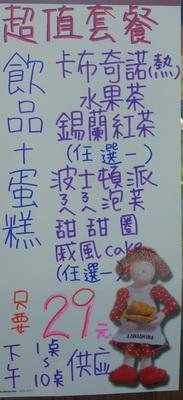 超值套餐
飲品+蛋糕
卡布奇諾(熱)
水果茶
錫蘭紅茶
(任選一)
波士頓派
ㄋㄋ泡芙
甜甜圈
戚風cake
(任選一)
只要29元
下午1桌~10桌供应
KAWASHIMA